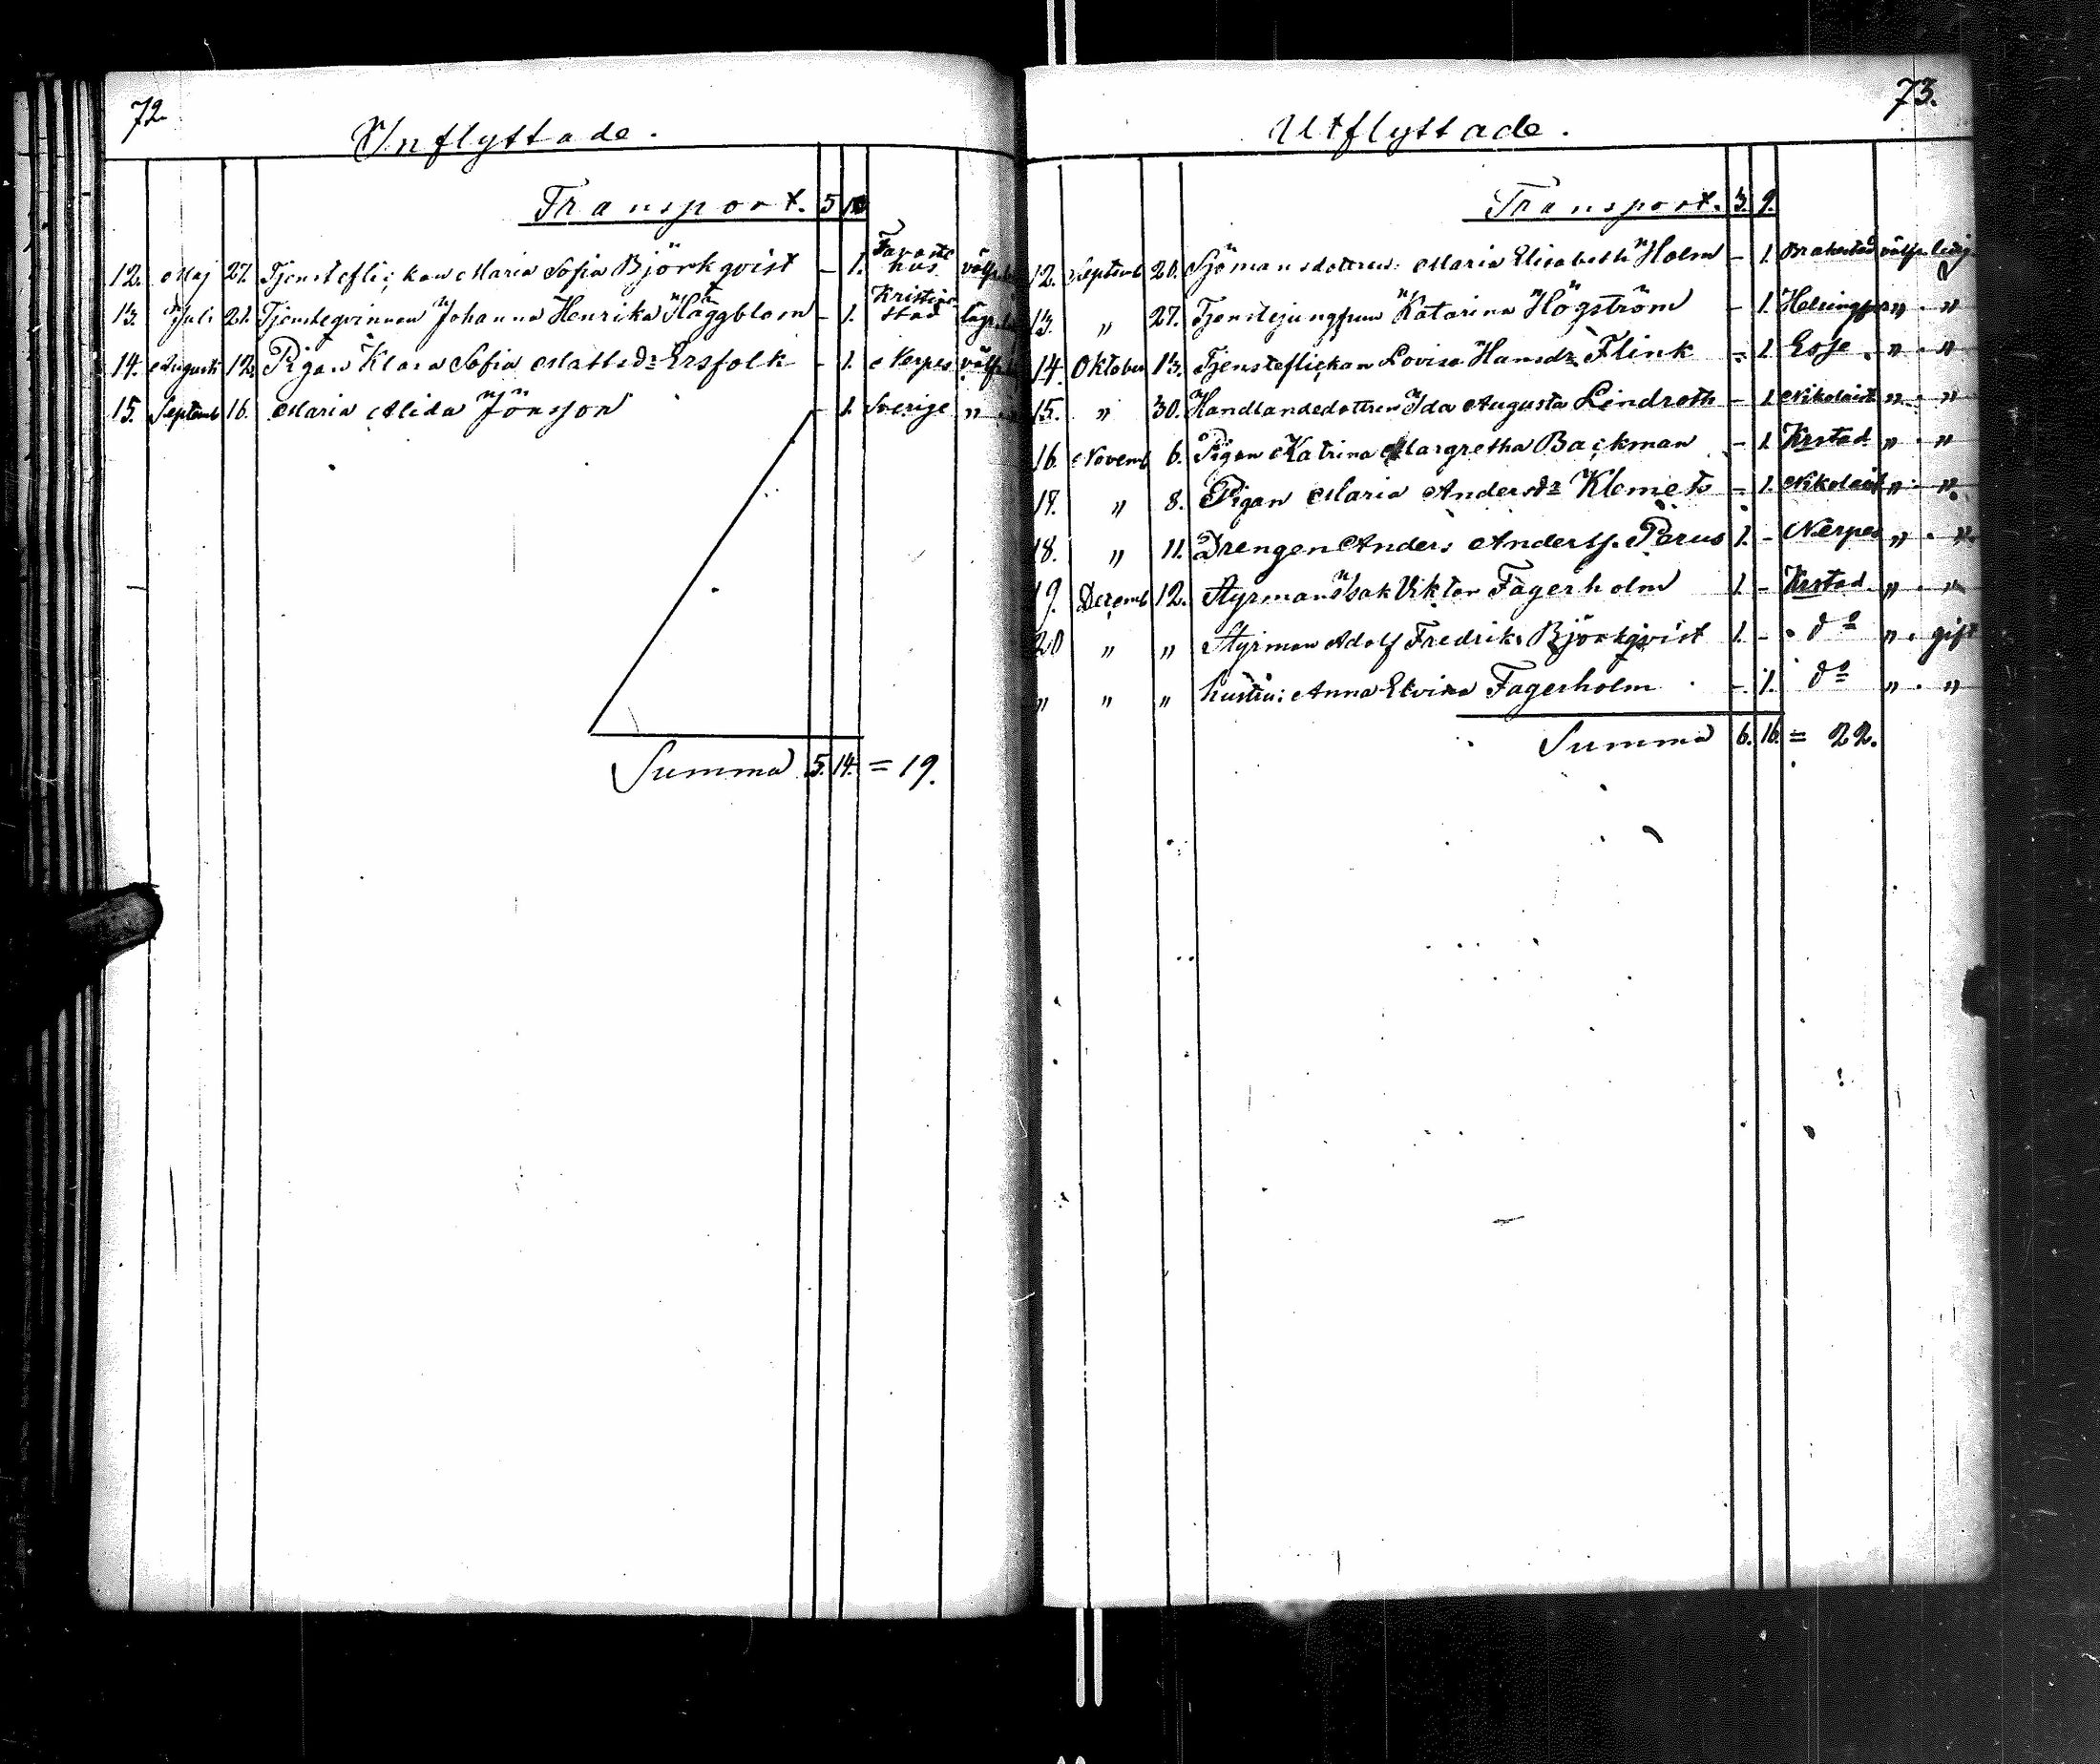 72.
Inflyttade.
Transport. 5 10
12. Maj 27. Tjensteflickan Maria Sofia Björkqvist – 1. Tavastehus välfr.
13. Juli 21. Tjenstegvinnan Johanna Henrika Häggblom – 1. Kristinestad
14. Augusti 12. Pigan Klara Sofia Mattsdr Ersfolk – 1. Nerpes välfr.
15. Septemb 16. Maria Alida Jönsson – 1. Sverige "
Summa 5. 14. = 19.
73.
Utflyttade.
Transport. 3. 9.
12. Septemb 20. Sjömansdottren Maria Elisabeth Holm – 1. Brahestad välfr. ledig
13. " 27. Tjenstejungfrun Katarina Högström – 1. Helsingfors " . "
14. Oktober 13. Tjensteflickan Lovisa Hansdr Flink – 1. Esse . " . "
15. " 30. Handlandedottren Ida Augusta Lindroth – 1. Nikolaist " . "
16. Novemb 6. Pigan Katrina Margretha Backman – 1. Krstad " . "
17. " 8. Pigan Maria Andersdr Klemets – 1. Nikolaist " . "
18. " 11. Drengen Anders Anderss. Perus 1. – Nerpes " . "
19. Decemb 12. Styrman Isak Viktor Fagerholm 1. – Krstad " . "
20 " " Styrman Adolf Fredrik Björkqvist 1. – do " . gift
" " " hustru: Anna Elvira Fagerholm – 1. do " . "
Summa 6. 16. = 22.